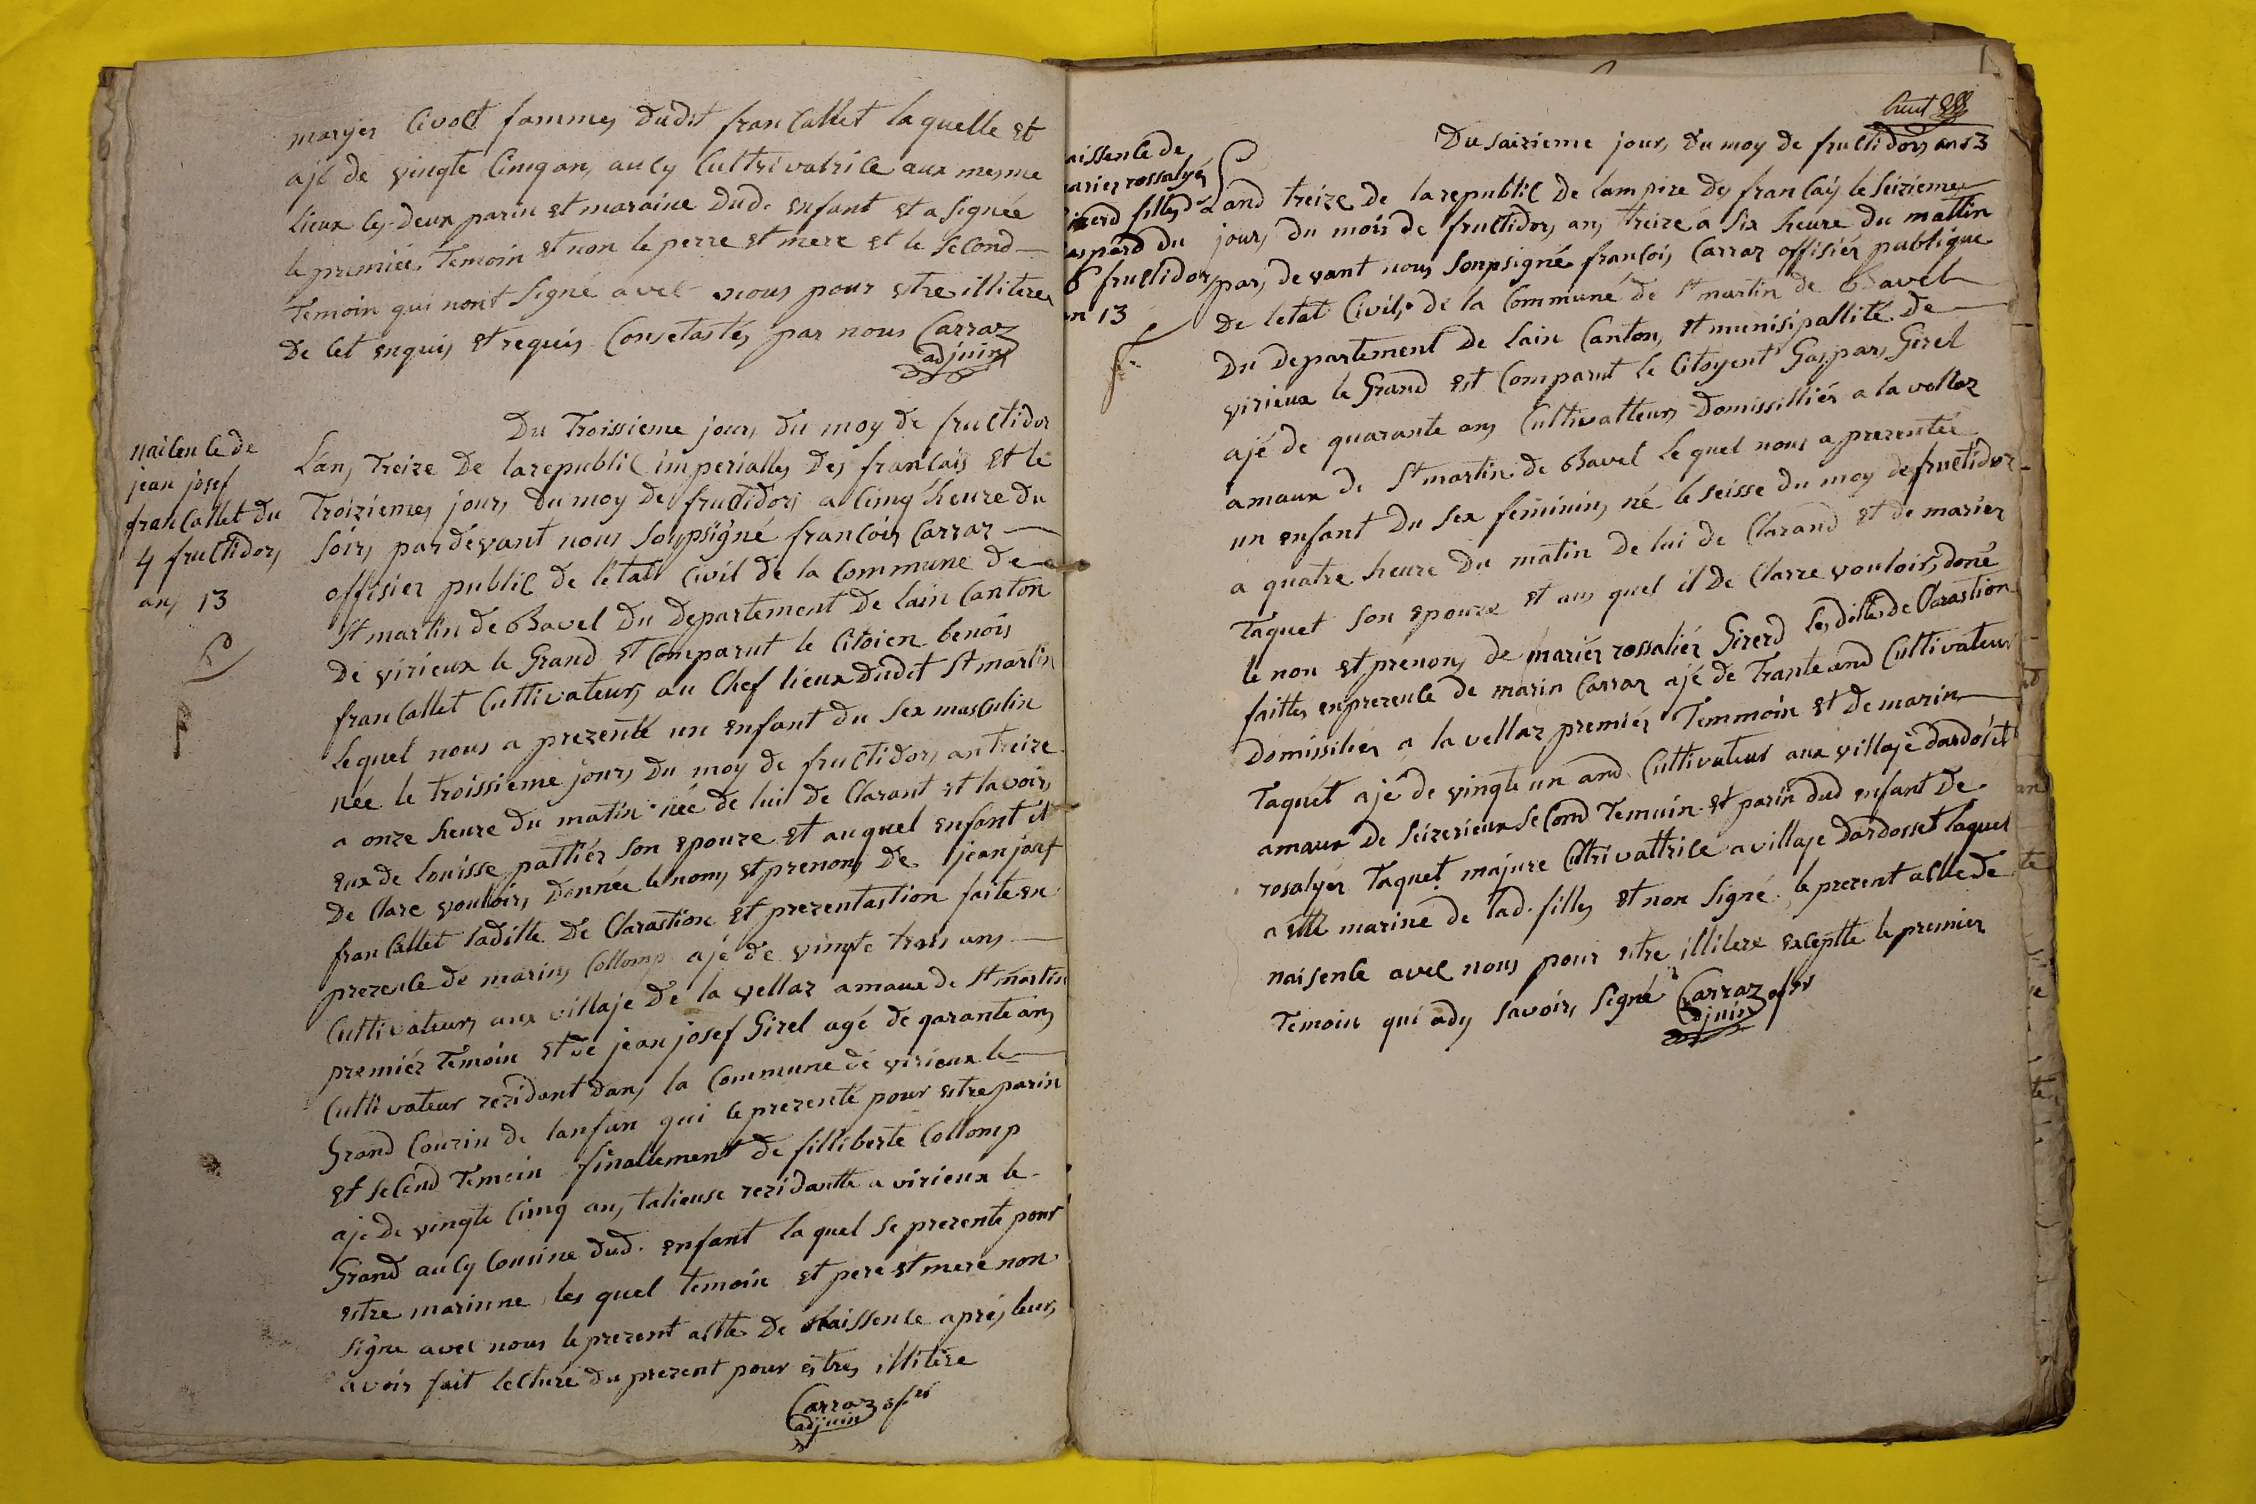 maryer Civoct fammes dudit francallet laquelle et
ajé de vingte Cinq an, aucy Cultrivatrice aux mesme
lieux les deux parin et maraine dudt enfant et a signée
le premiée Temoin et non le perre et mere et le second
Temoin qui nont signé avec nous pour etre illitere
de Cet enquis et requis Consetastés par nous Carraz
adjuint
Du Troissieme jour, du moy de fructidor
naicence de
jean josef
francallet du
4 fructidor,
an, 13
Lan, Treize de la republic imperialle, des francais et le
Troizieme, jour, du moy de, fructidor, a Cinq heure du
soir, pardevant nous soupsigné francois Carraz
offisier public de l'etat Civil de la Commune de
St martin de Bavel du departement de lain Canton
de virieux le Grand et Comparut le Citoien benois
francallet Cultivateur, au Chef lieux dudit St martin
lequel nous a prezenté un enfant du sex masculin
née le troissieme jour, du moy de fructidor, an treize
a onze heure du matin née de lui de Clarant et lavoir,
eux de louisse pattiér son epouze et auquel enfant il
de Clare vouloir, donnée le nom, et prenom, de jean josef
francallet ladille de Claration et prezentastion faite en
prezence de marin, Collomp ajé de vingte trois ans
Cultivateur, aux villaje de la vellaz amaux de St martin
premiér Temoin et de jean josef Girel agé de qarante an,
Cultivateur rezidant dans la Commune de virieux le
Grand Couzin de lanfan qui le prezenté pour etre parin
et second Temoin finallement de filliberte Collomp
ajé de vingte Cinq an, talieuse rezidantte a virieux le
Grand aucy Cousine dud. enfant laquel se prezente pour
etre marinne les quel temoin et pere et mere non
signe avec nous le prezent actte de naissence aprés leur,
avoir fait lecture du prezent pour etre, illitére
Carraz ofer
adjuint
huit
Du saizieme jour, du moy de fructidor, an 13
aissence de
marier rossalyé
Girerd fille, de
gaspard du
6 fructidor,
an 13
Land treize de la republic de lampire des francais le seizieme
jour, du mois de fructidor, an, treize a six heure du mattin
par, devant nous soupsigné francois, Carraz offisiér publique
de letat Civil, de la Commune de St martin de Bavel
du departement de lain Canton, et munisipallité de
virieux le Grand est Comparut le Citoyent Gaspar, Girel
ajé de quarante an, Cultivatteur, domissilliér a la vellaz
amaux de St martin de Bavel lequel nous a prezentée
un enfant du sex feminin, né le seisse du moy de fructidor
a quatre heure du matin de lui de Clarand et de marier
Taquet son epouze et au, quel il de Clarre vouloir, doné
le non et prenom, de mariér rossaliér Girerd les dittes de Clarastion
faitte, en prezence de marin Carraz ajé de Trante and Cultivateur
domissilier a la vellaz premiér Temmoin et de marin
Taquet ajé de vingte un and Cultivateur aux villaje dardosset
amaux de seizerieux second Temoin et parin dud enfant de
rosalyer Taquet majure Cultrivattrice a villaje dardosset laquel
a etté marine de lad. fille, et non signé le prezent acte de
naisence avec nous pour etre illitere exceptte le premier
Temoin qui a dy savoir, signé Carraz ofer
adjuint